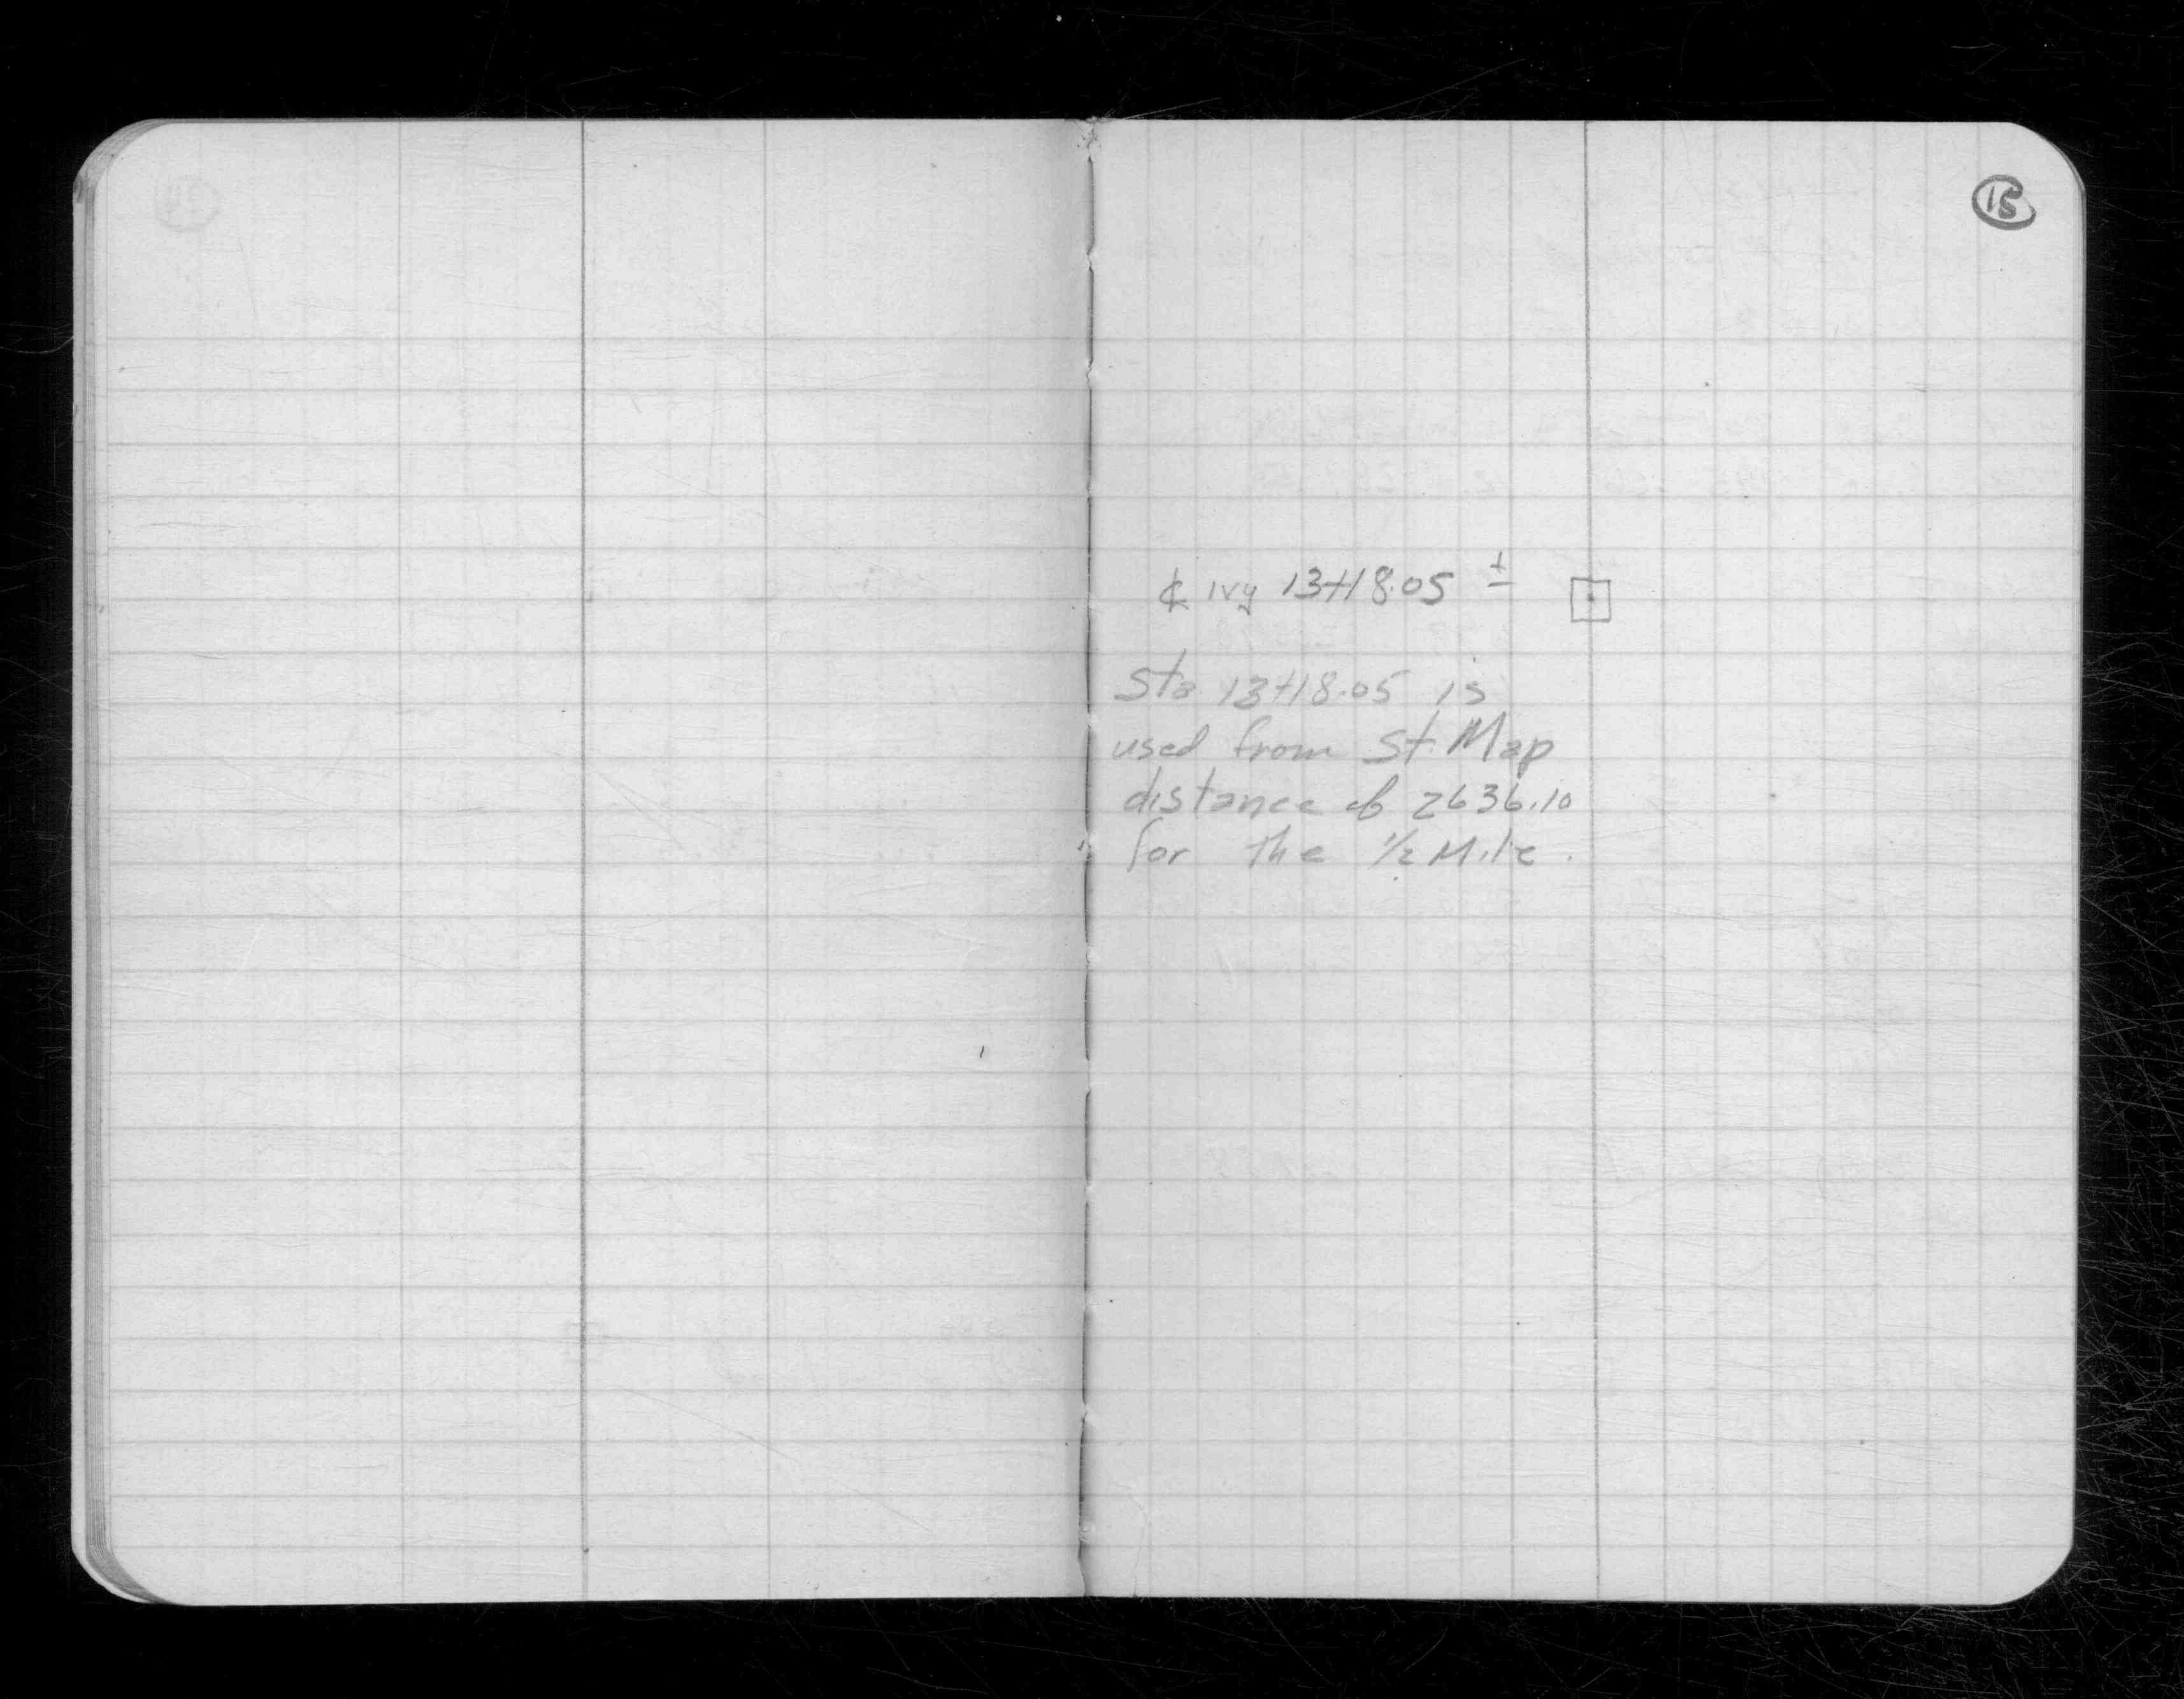 15
℄ Ivy 13+18.05 ±
Sta 13+18.05 is
used from St. Map
distance of 2636.10
for the 1/2 Mile.